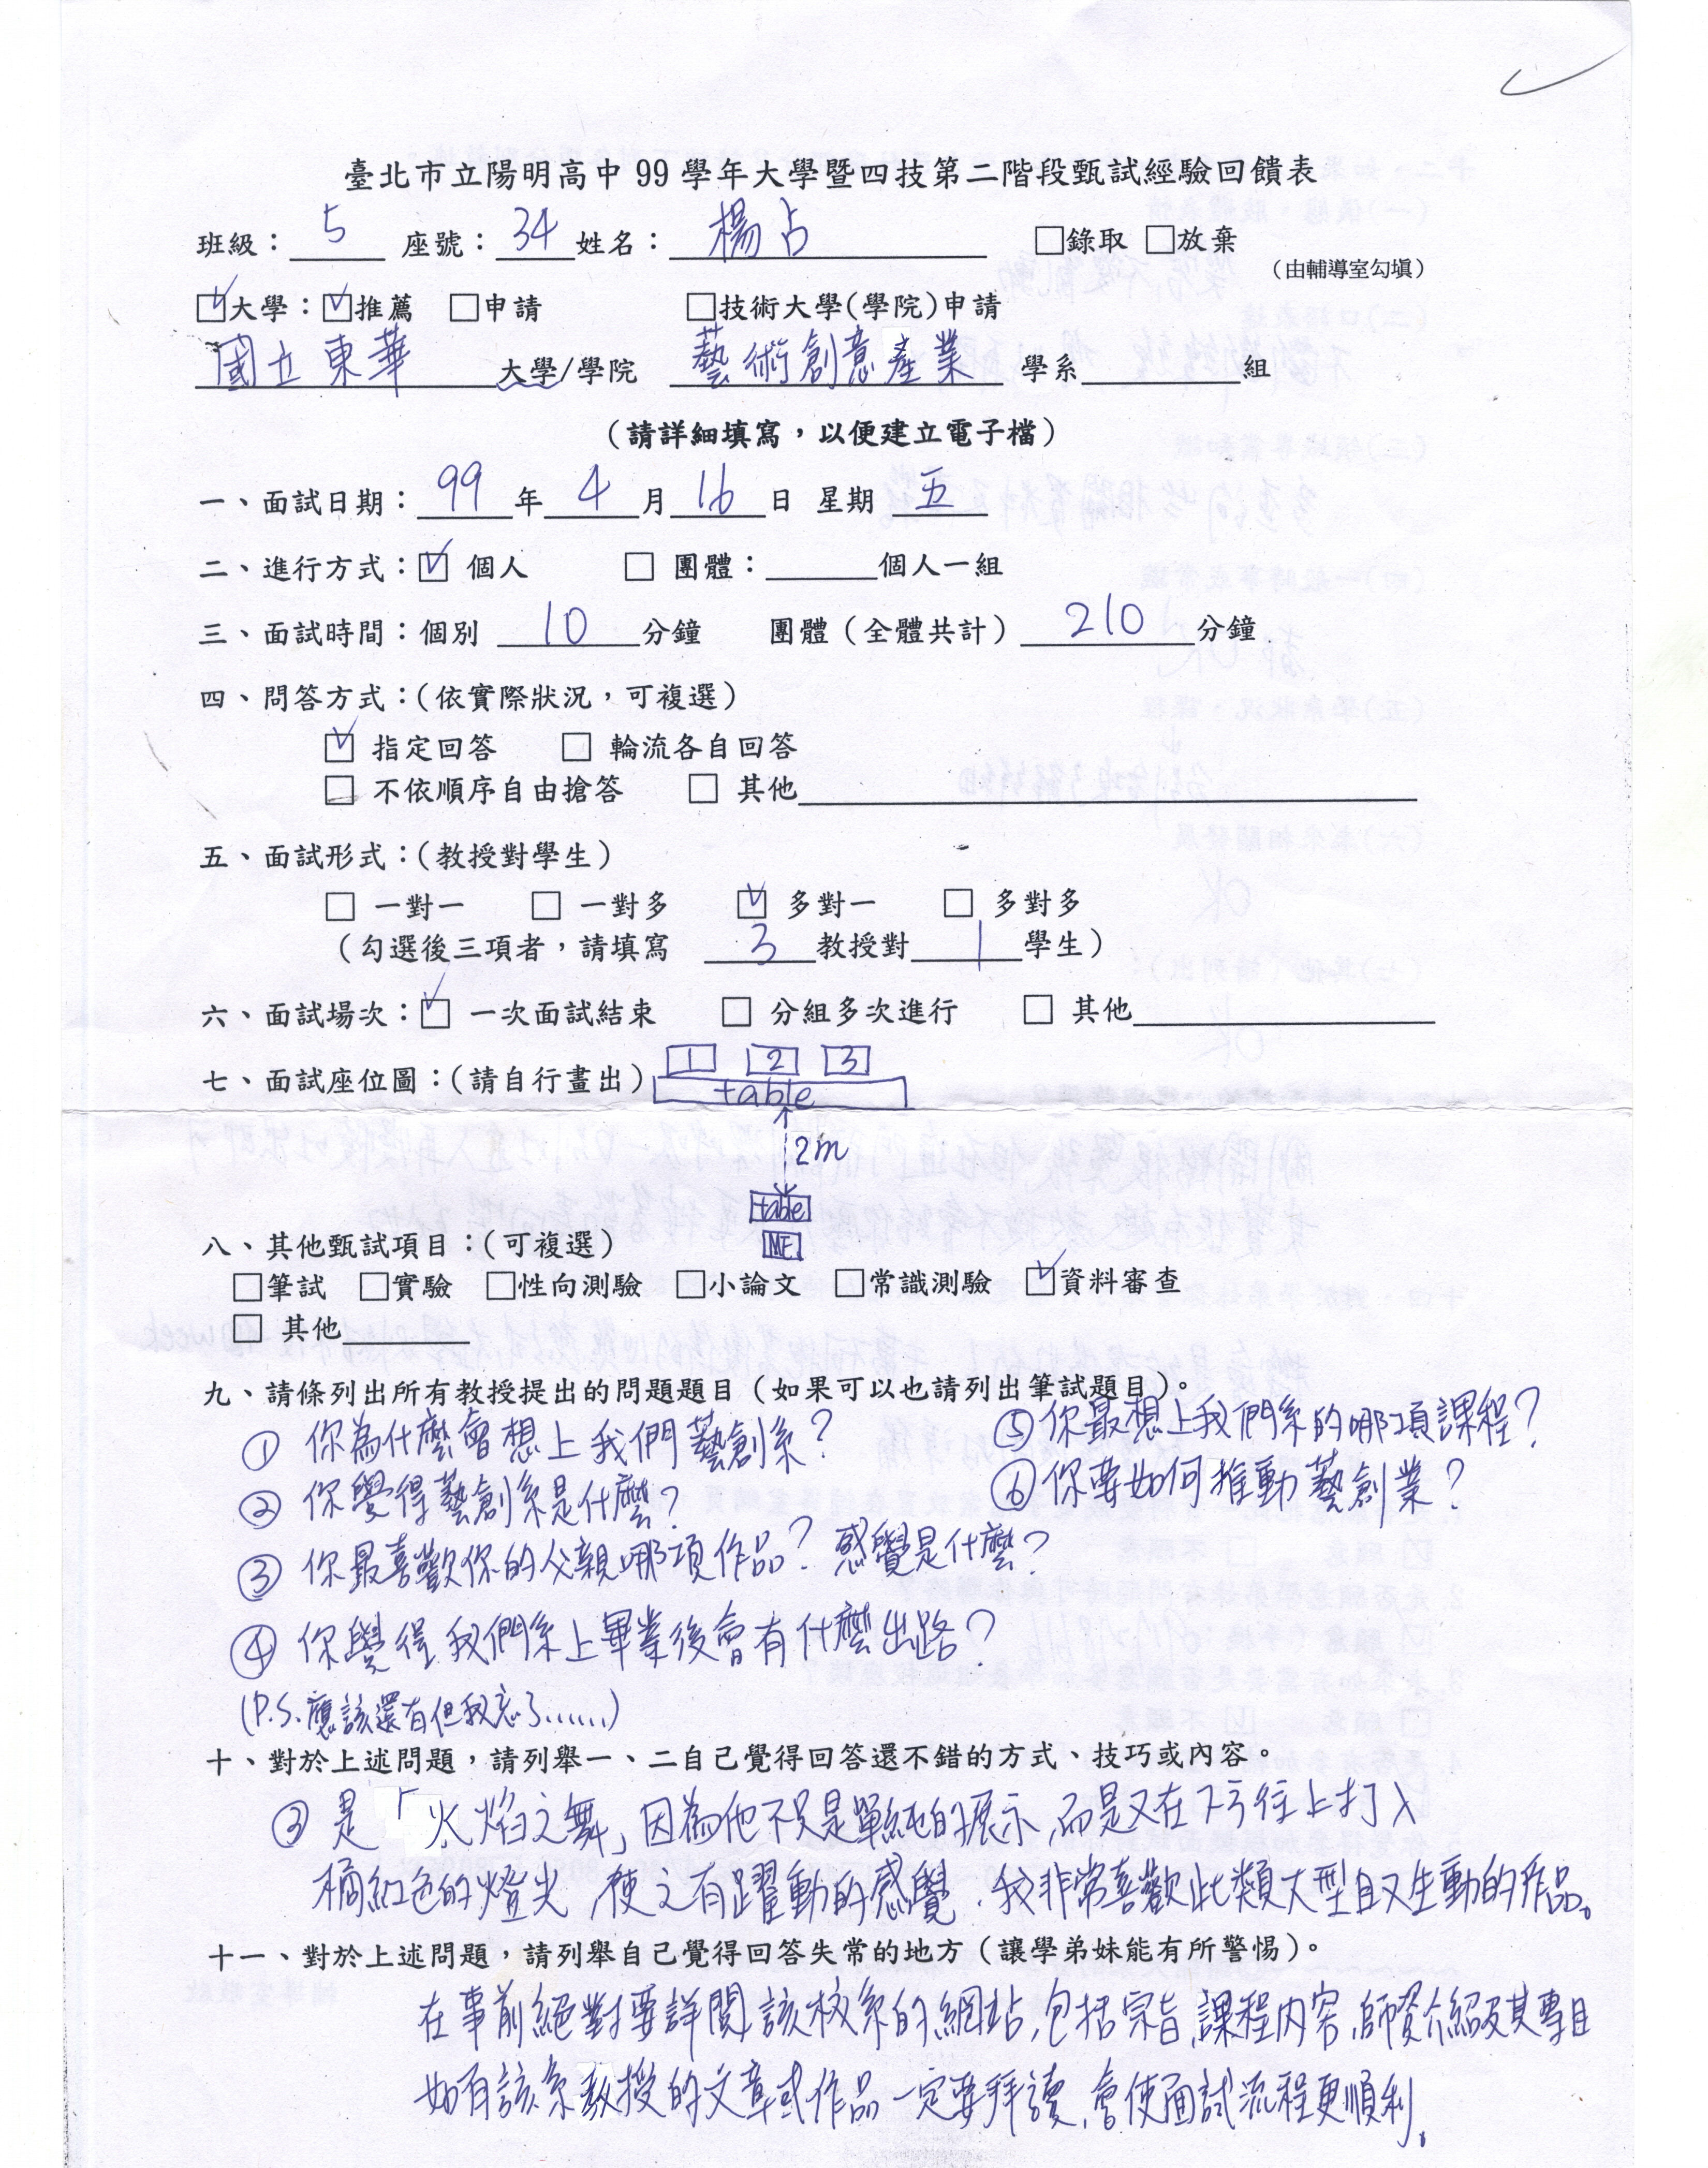 臺北市立陽明高中 99 學年大學暨四技第二階段甄試經驗回饋表
班級：5 座號：34 姓名：楊占 □錄取 □放棄
（由輔導室勾填）
☑大學：☑推薦 □申請 □技術大學(學院)申請
國立東華大學/學院 藝術創意產業 學系 組
（請詳細填寫，以便建立電子檔）
一、面試日期：99年4月16日 星期 五
二、進行方式：☑ 個人 □ 團體： 個人一組
三、面試時間：個別 10 分鐘 團體（全體共計）210 分鐘
四、問答方式：(依實際狀況，可複選)
☑ 指定回答 □ 輪流各自回答
□ 不依順序自由搶答 □ 其他
五、面試形式：(教授對學生)
□ 一對一 □ 一對多 ☑ 多對一 □ 多對多
（勾選後三項者，請填寫 3 教授對 1 學生）
六、面試場次：☑ 一次面試結束 □ 分組多次進行 □ 其他
1 2 3
七、面試座位圖：(請自行畫出) table
2m
table
ME
八、其他甄試項目：(可複選)
□筆試 □實驗 □性向測驗 □小論文 □常識測驗 ☑資料審查
□ 其他
九、請條列出所有教授提出的問題題目（如果可以也請列出筆試題目）。
① 你為什麼會想上我們藝創系？
② 你覺得藝創系是什麼？
③ 你最喜歡你的父親哪項作品？感覺是什麼？
④ 你覺得我們系上畢業後會有什麼出路？
(P.S.應該還有但我忘了......)
⑤ 你最想上我們系的哪項課程？
⑥ 你要如何推動藝創業？
十、對於上述問題，請列舉一、二自己覺得回答還不錯的方式、技巧或內容。
③ 是「火焰之舞」因為他不只是單純的展示，而是又在下方往上打入
橘紅色的燈光，使之有躍動的感覺．我非常喜歡此類大型且又生動的作品。
十一、對於上述問題，請列舉自己覺得回答失常的地方（讓學弟妹能有所警惕）。
在事前絕對要詳閱該校系的網站，包括宗旨，課程內容，師資介紹及其專目
如有該系教授的文章或作品一定要拜讀，會使面試流程更順利。